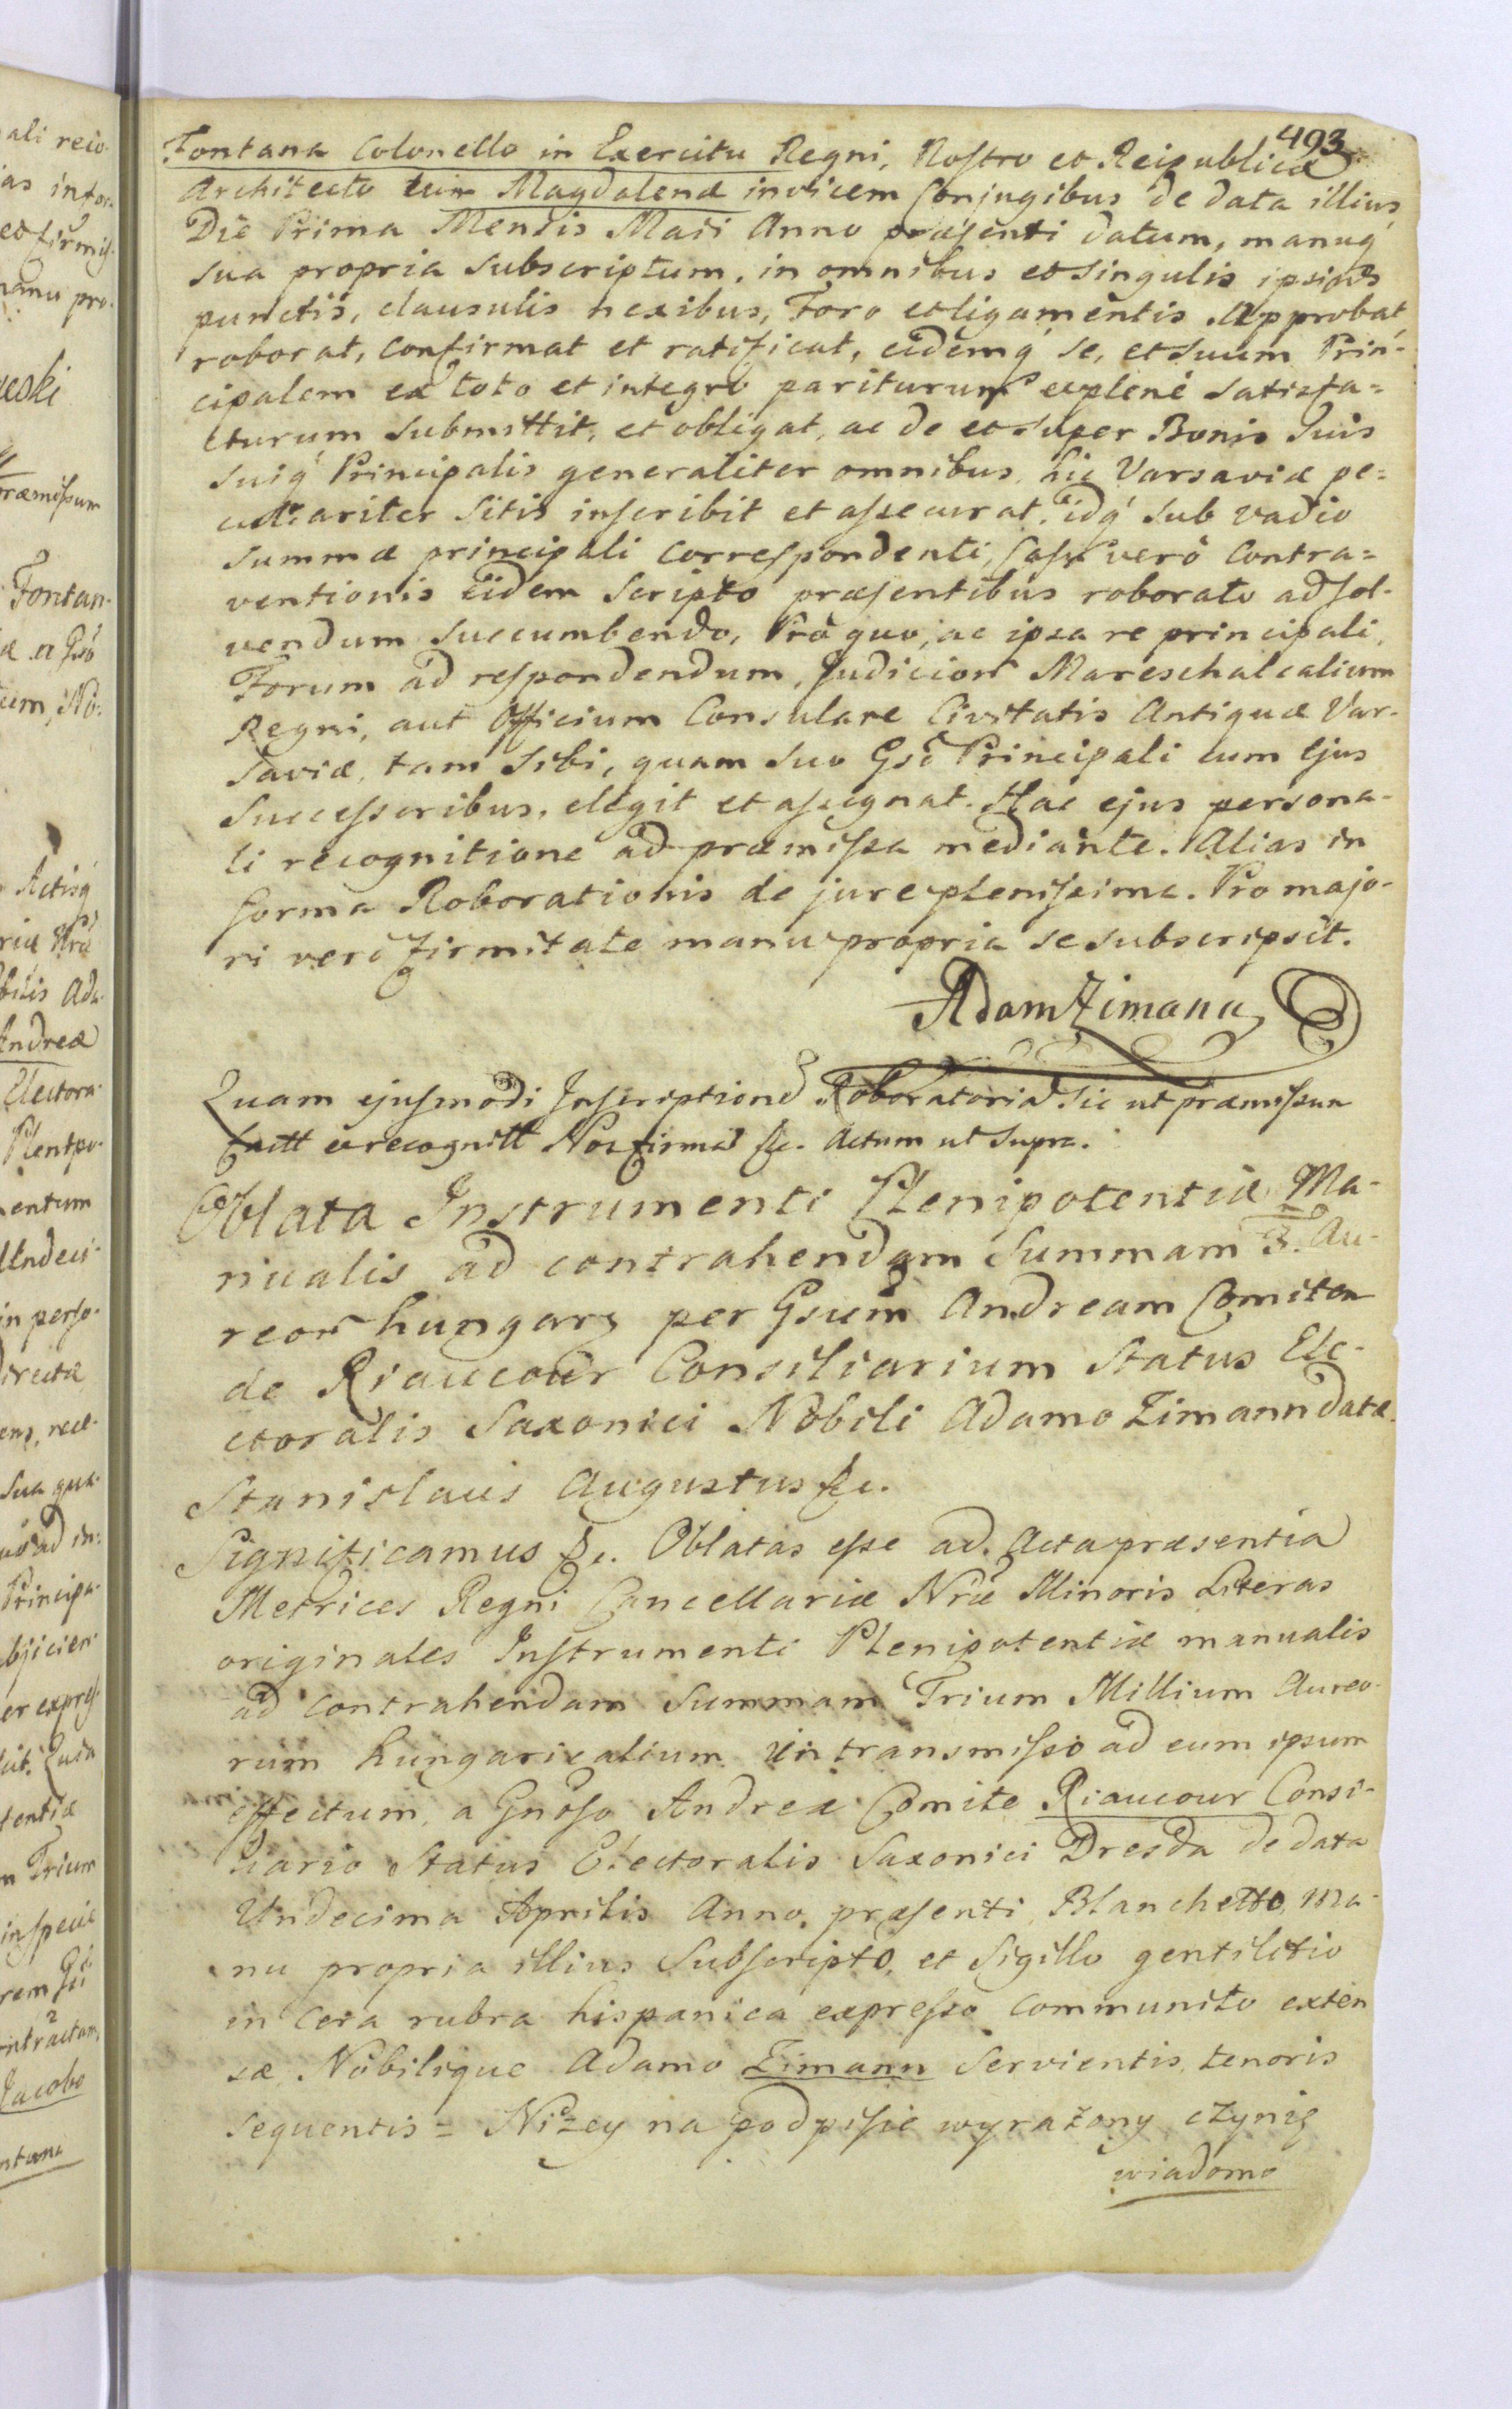 493
Fontana Colonello in Exercitu Regni, Nostro et Reipublicæ
Architecto tum Magdalenæ invicem Conjugibus de data illius
Die Prima Mensis Maÿ Anno præsenti datum, manuq́
sua propria subscriptum, in omnibus et singulis ipsius
punctis, clausulis nexibus, Foro et ligamentis Approbat,
roborat, confirmat et ratificat, eidemq́ se, et suum Prin-
cipalem ex toto et integro pariturum explene satisfa=
cturum submittit, et obligat, ac de et super Bonis suis
suiq́ Principalis generaliter omnibus, hic Varsaviæ pe=
culiariter sitis inscribit et assecurat. idq́ sub vadio
summæ principali correspondenti, Casu verò Contra=
ventionis eidem Scripto præsentibus roborato ad sol-
vendum succumbendo, Prò quo, ac ipsa re principali,
Forum ad respondendum, Judicior Mareschalcalium
Regni, aut Officium Consulare Civitatis Antiquæ Var-
saviæ, tam sibi, quam suo Gsō Principali cum Ejus
Successoribus, elegit et assignat. Hac ejus persona-
li recognitione ad præmissa mediante. Alias in
forma Roborationis de jure plenissima. Pro majo-
ri verò firmitate manu propria se subscripsit.
Adam Zimann
Quam ejusmodi Inscriptione Roboratoria sic ut præmissum
factt et recognitt Nos firma &c. Actum ut supra.
Oblata Instrumenti Plenipotentiæ Ma-
nualis ad contrahendam Summam 3. Au-
reor hungar per Gsum Andream Comitem
de Riaucour Consiliarium Status Ele-
ctoralis Saxonici Nobili Adamo Zimann datæ.
Stanislaus Augustus &c.
Significamus &c. Oblatas esse ad Acta præsentia
Metrices Regni Cancellariæ Nræ Minoris Literas
originales Instrumenti Plenipotentiæ manualis
ad contrahendam Summam Trium Millium Aureo-
rum hungaricalium in transmisso ad eum ipsum
effectum, a Gnoso Andrea Comite Riaucour Consi-
liario Status Electoralis Saxonici Dresda de data
Undecima Aprilis Anno præsenti Blanchetto, ma-
nu propria illius Subscripto, et Sigillo gentilitio
in Cera rubra hispanica expresso communito exten
sæ Nobilique Adamo Zimann servientis, tenoris
sequentis = Niżey na podpisie wyrażony czynię
wiadomo